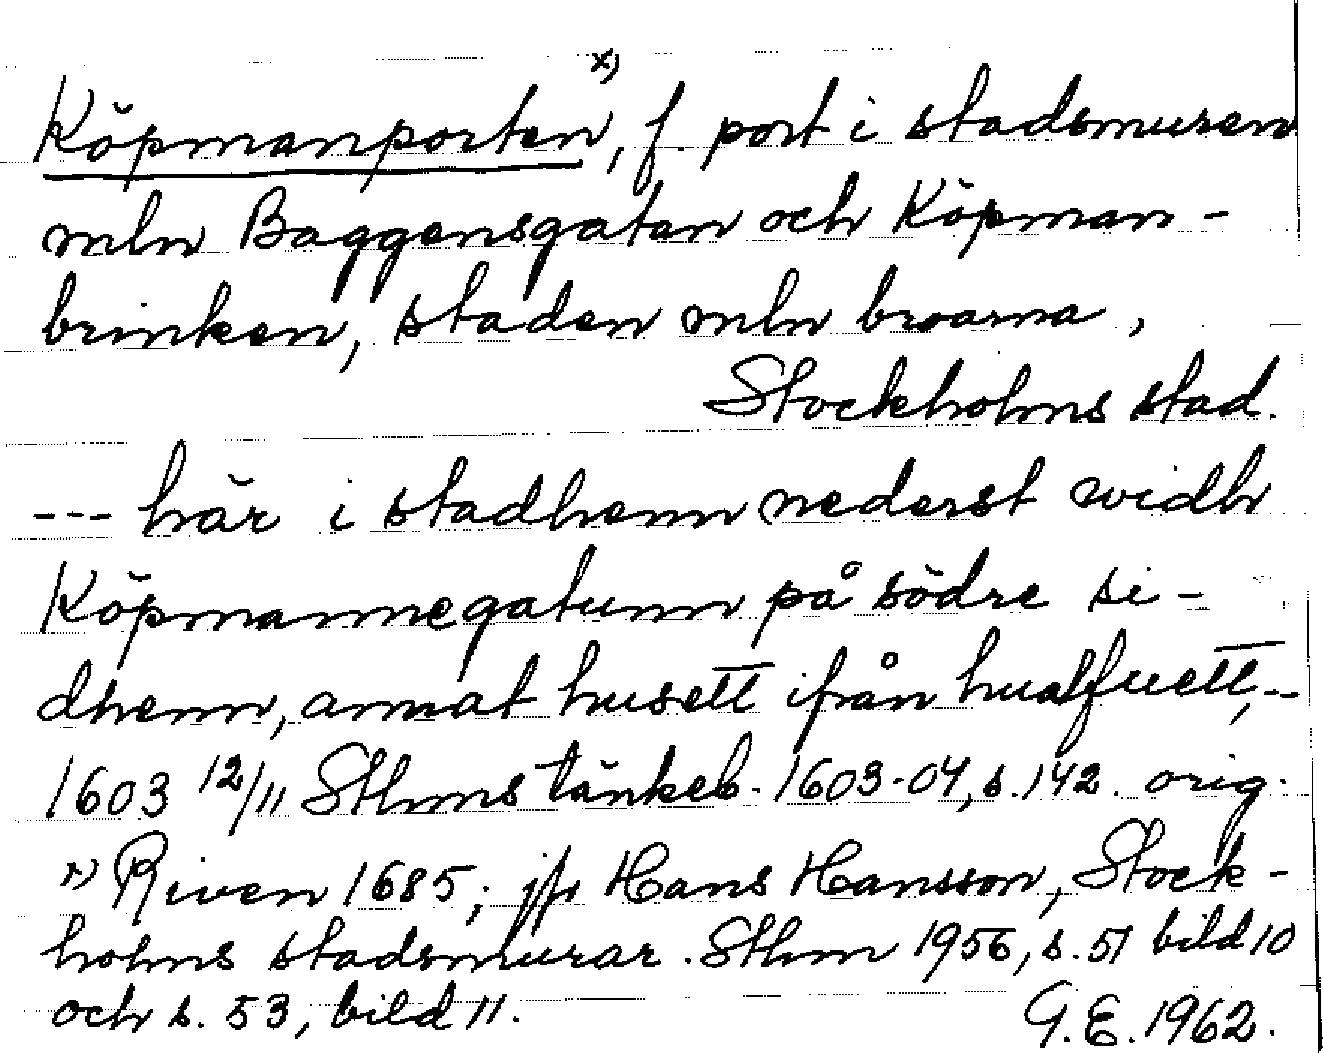 Köpmanporten x), f. port i stadsmuren
mln Baggensgatan och Köpman-
brinken, staden mln broarna,
Stockholms stad.
--- här i stadhenn nederst widh
Köpmannegatunn på södre si-
dhenn, annat husett ifrån hualfuett,--
1603 12/11 Sthms tänkeb. 1603-04, s. 142. orig.
x) Riven 1685; jfr Hans Hansson, Stock-
holms stadsmurar. Sthm 1956, s. 51 bild 10
och s. 53, bild 11. G.E. 1962.